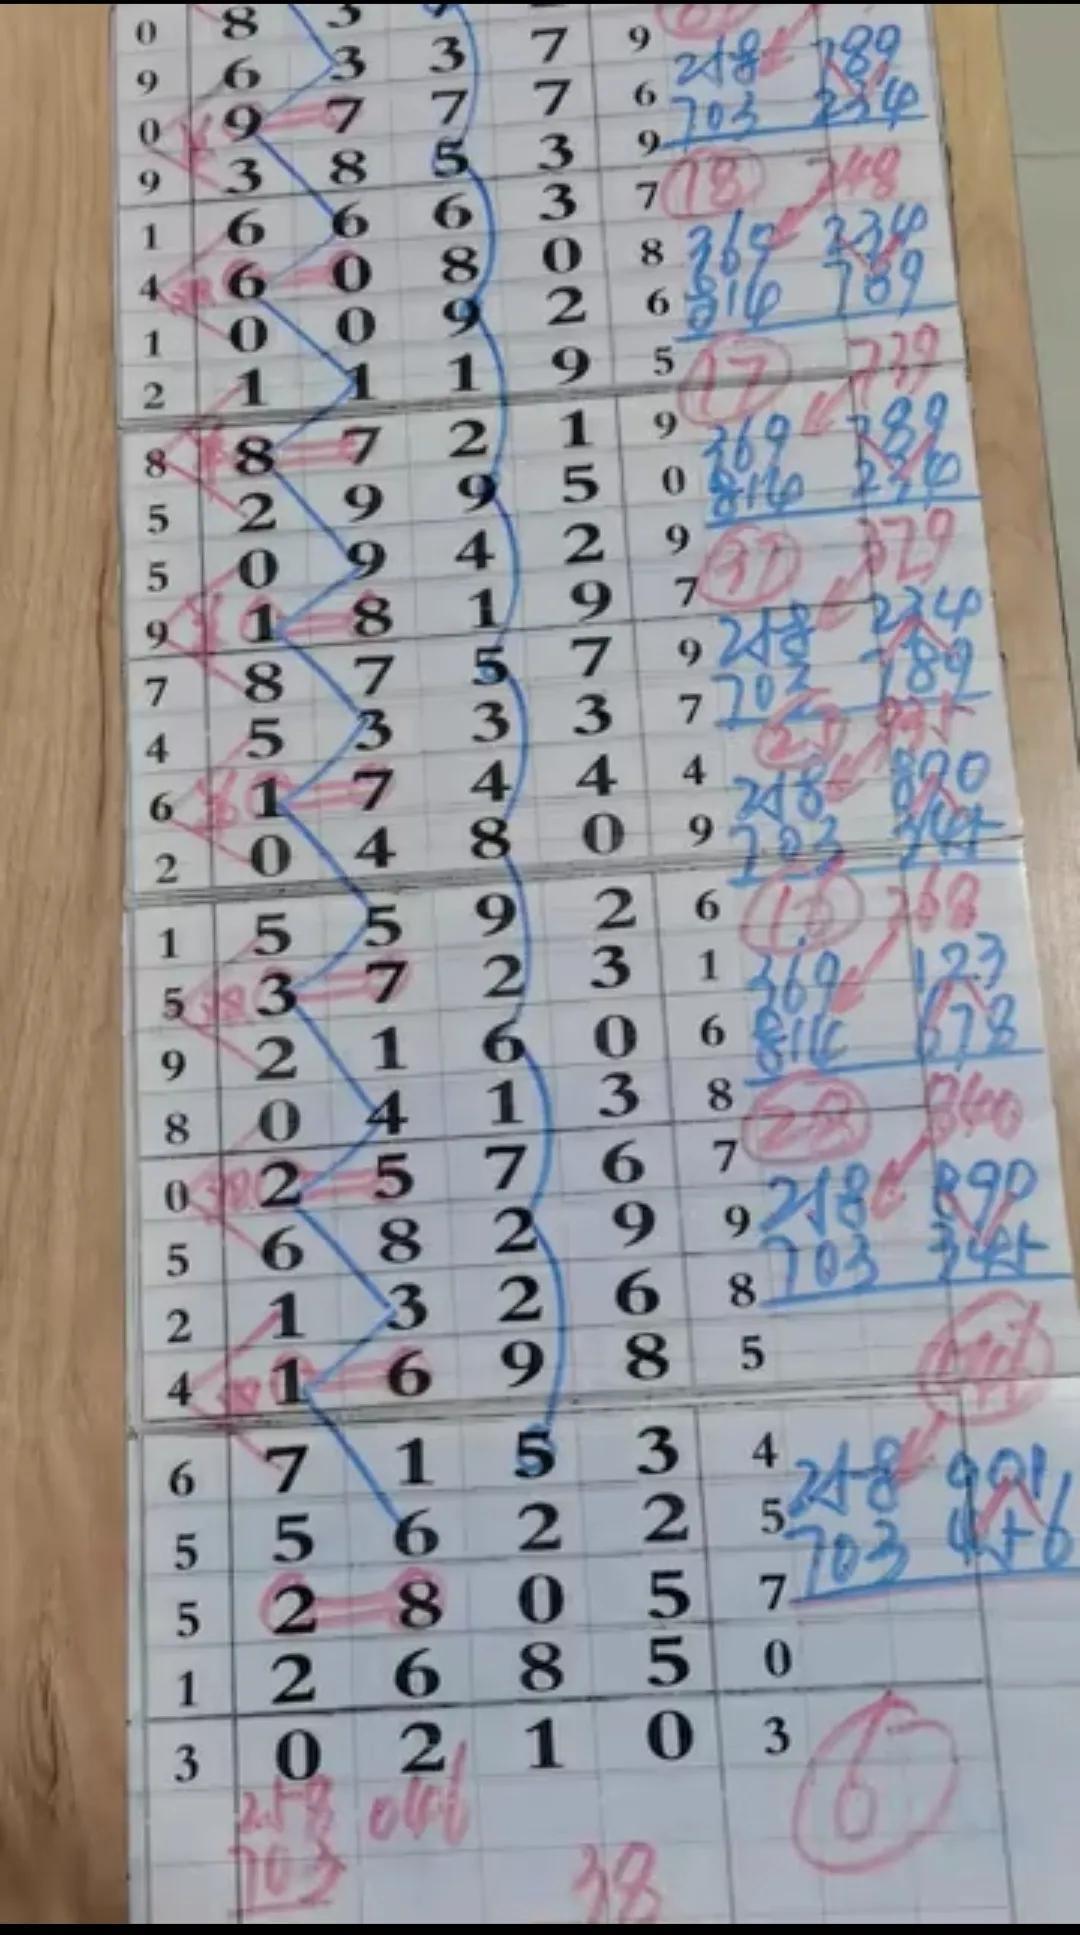 0 8 3
9 6 3 3 7 9 258 789
0 9 7 7 7 6 703 234
9 3 8 5 3 9
1 6 6 6 3 7 18 348
4 6 0 8 0 8 369 234
1 0 0 9 2 6 814 789
2 1 1 1 9 5 17 739
8 8 7 2 1 9 369 789
5 2 9 9 5 0 814 234
5 0 9 4 2 9 379
9 1 8 1 9 7 258 234
7 8 7 5 7 9 703 789
4 5 3 3 3 7
6 1 7 4 4 4 258 890
2 0 4 8 0 9 703 345
1 5 5 9 2 6 268
5 3 7 2 3 1 369 123
9 2 1 6 0 6 814 678
8 0 4 1 3 8 28
0 2 5 7 6 7 258 890
5 6 8 2 9 9 703 345
2 1 3 2 6 8
4 1 6 9 8 5
6 7 1 5 3 4 258 901
5 5 6 2 2 5 703 456
5 2 8 0 5 7
1 2 6 8 5 0
3 0 2 1 0 3 6
258 046
703 38